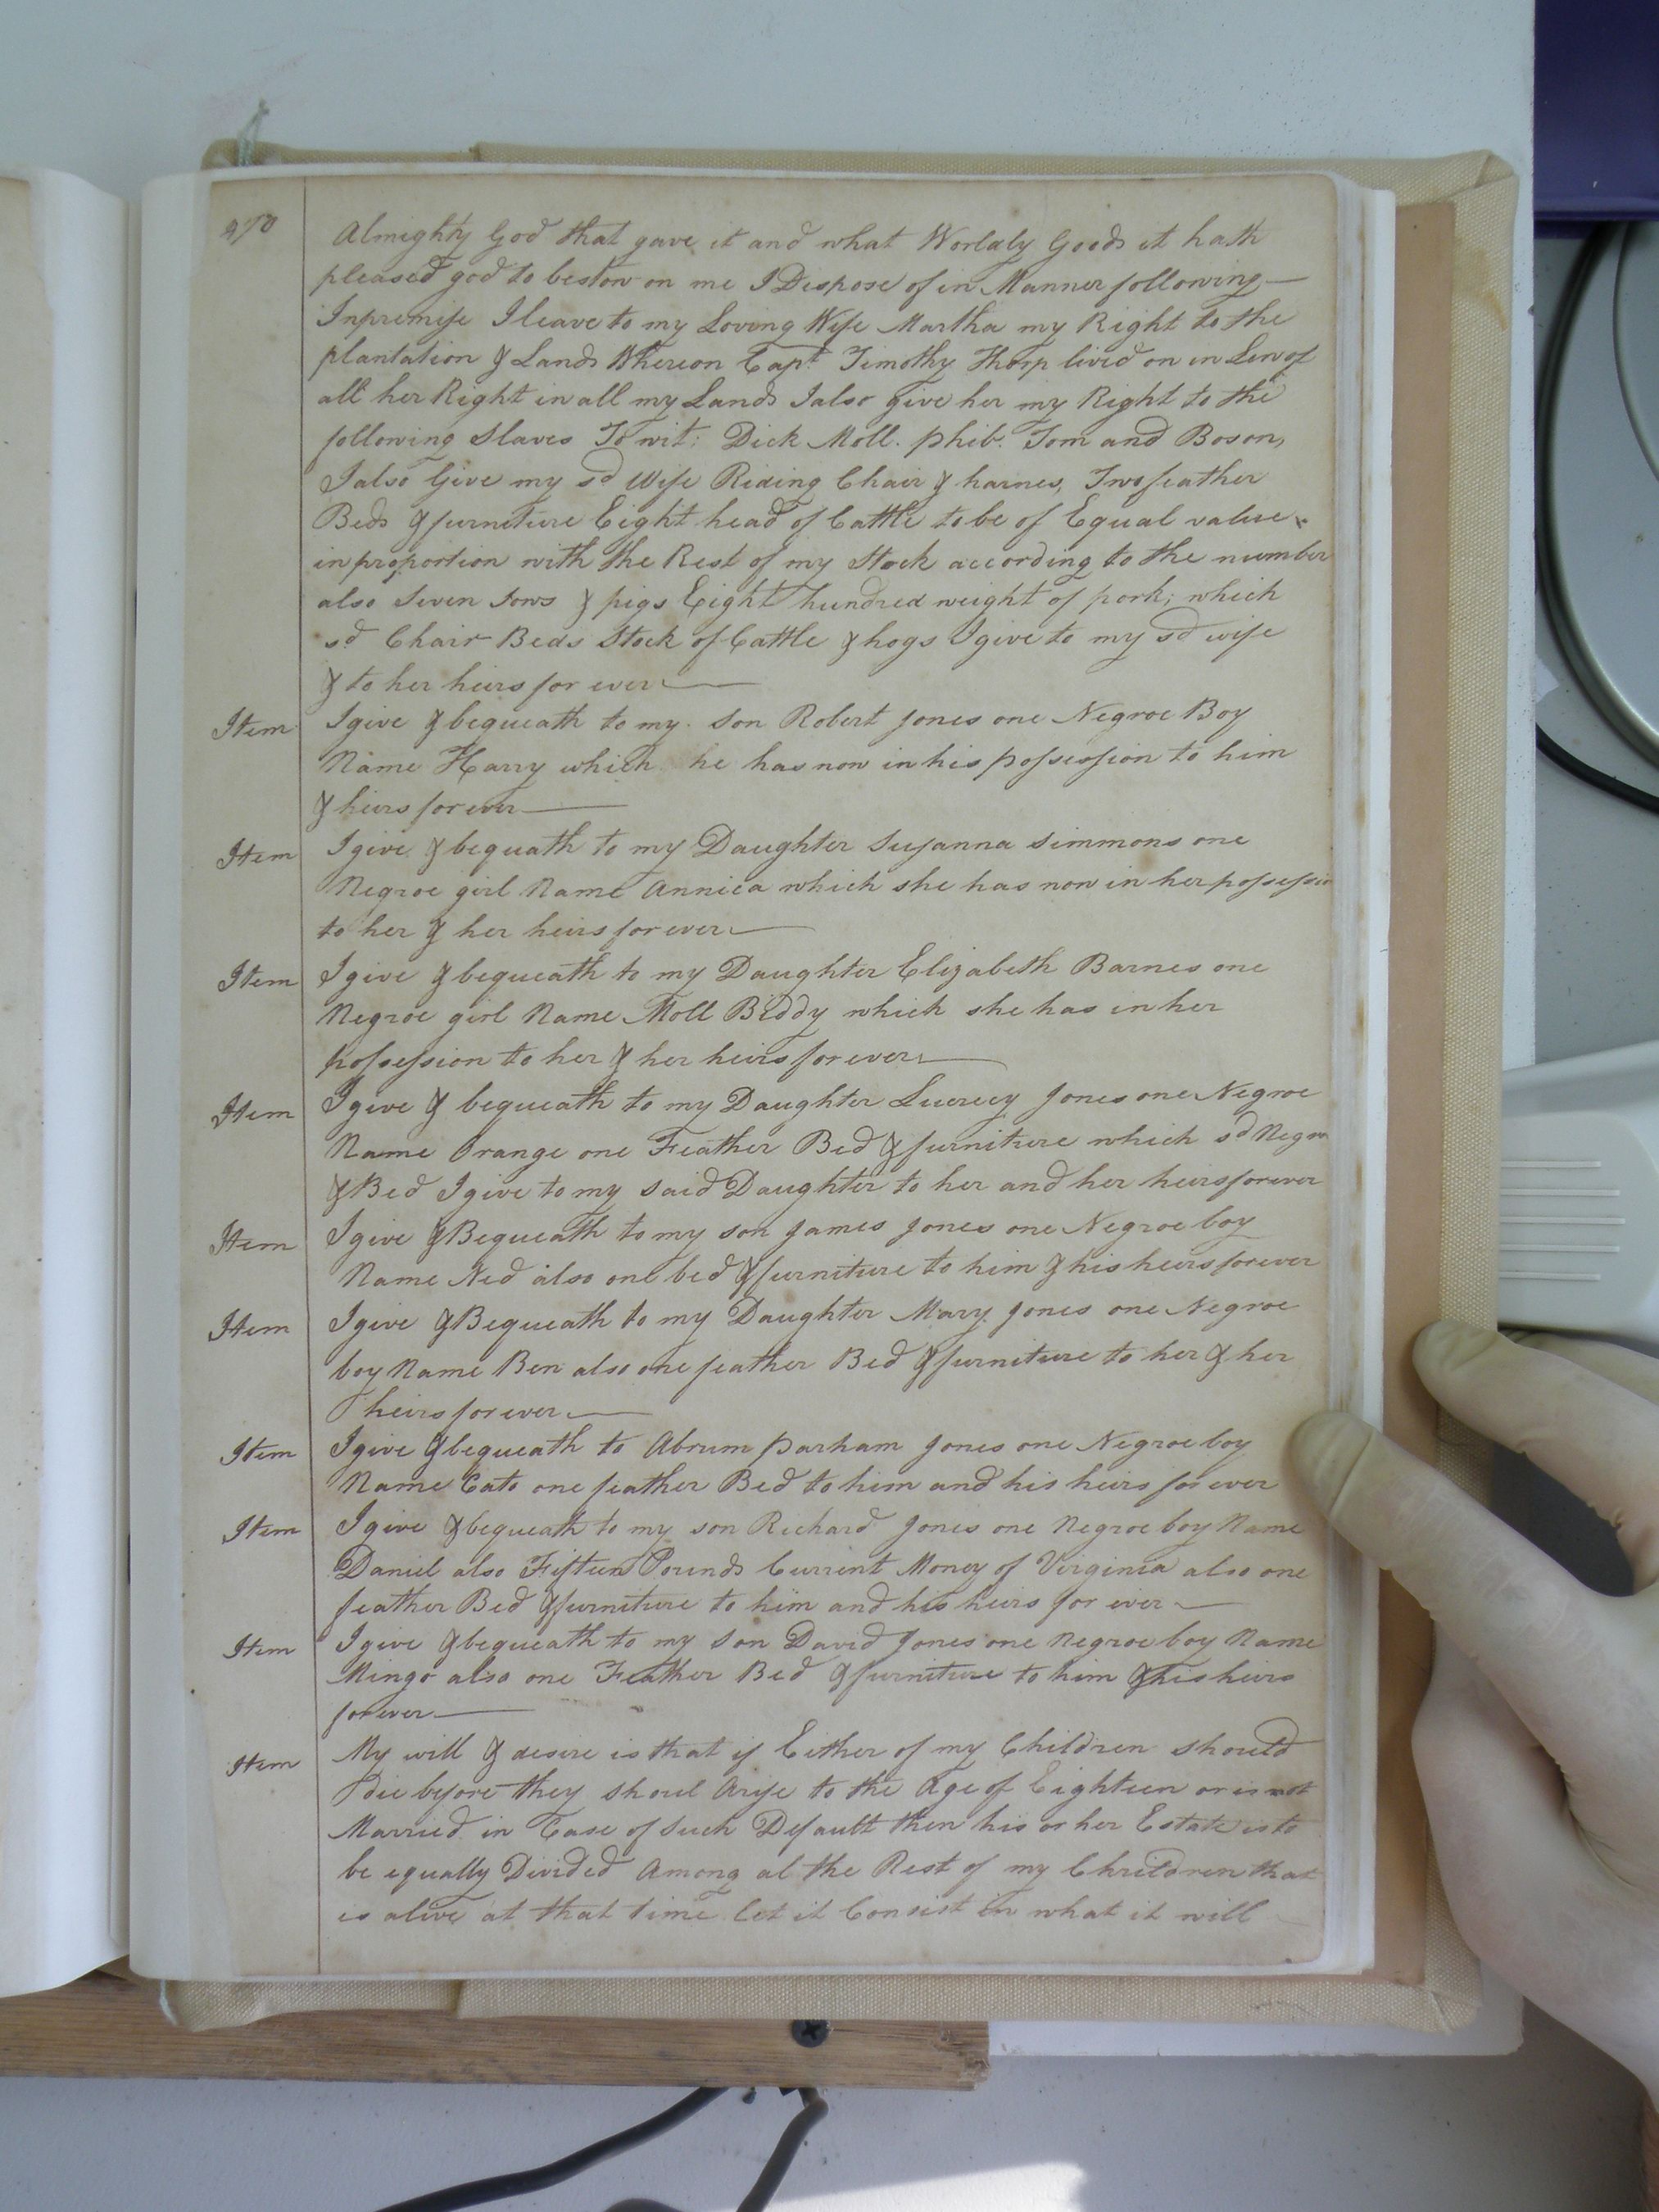 470
Almighty God that gave it and what Worldly Goods it hath
pleased god to bestow on me I Dispose of in Manner following —
Inpremise I leave to my Loving Wife Martha my Right to the
plantation & Lands Whereon Capt. Timothy Thorp lived on in Lew of
all her Right in all my Lands I also give her my Right to the
following Slaves To wit: Dick Moll. phib. Tom and Boson,
I also Give my sd Wife Riding Chair & harnes, Two feather
Beds & furniture Eight head of Cattle to be of Equal value
in proportion with the Rest of my Stock according to the number
also Seven Sows & pigs Eight hundred weight of pork; which
sd Chair Beds Stock of Cattle & hogs I give to my sd wife
& to her heirs for ever —
Item I give & bequeath to my son Robert Jones one Negroe Boy
Name Harry which he has now in his possession to him
& heirs for ever —
Item I give & bequath to my Daughter Susanna Simmons one
Negroe girl Name Annica which she has now in her possession
to her & her heirs for ever —
Item I give & bequeath to my Daughter Elizabeth Barnes one
Negroe girl Name Moll Biddy which she has in her
possession to her & her heirs for ever —
Item I give & bequeath to my Daughter Lucrecy Jones one Negroe
Name Orange one Feather Bed & furniture which sd Negroe
& Bed I give to my said Daughter to her and her heirs forever
Item I give & Bequeath to my son James Jones one Negroe boy
Name Ned also one bed & furniture to him & his heirs forever
Item I give & Bequeath to my Daughter Mary Jones one Negroe
boy Name Ben also one feather Bed & furniture to her & her
heirs for ever —
Item I give & bequeath to Abrum parham Jones one Negroe boy
Name Cato one feather Bed to him and his heirs for ever
Item I give & bequeath to my son Richard Jones one Negroe boy Name
Daniel also Fifteen Pounds Current Money of Virginia also one
feather Bed & furniture to him and his heirs for ever —
Item I give & bequeath to my son David Jones one Negroe boy Name
Mingo also one Feather Bed & furniture to him & his heirs
for ever —
Item My will & desire is that if Either of my Children should
Die before they shoul Arise to the Age of Eighteen or is not
Married in Case of Such Default then his or her Estate is to
be equally Divided Among al the Rest of my Children that
is alive at that time let it Consist in what it will